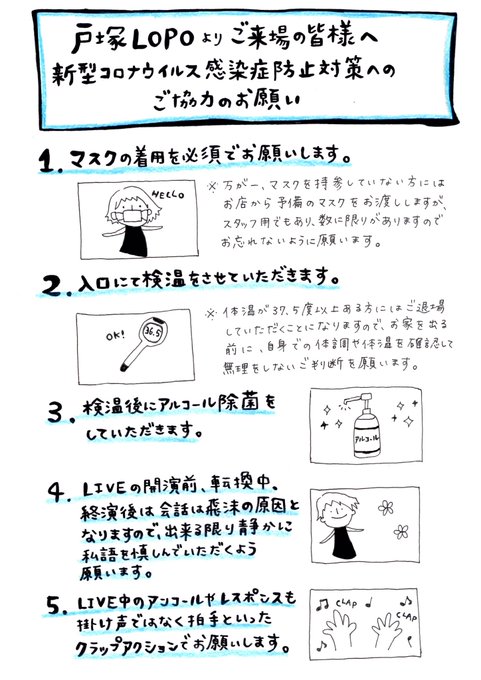 戸塚LOPOよりご来場の皆様へ
新型コロナウイルス感染症防止対策への
ご協力のお願い
1. マスクの着用を必須でお願いします。
HELLO
※万が一、マスクを持参していない方には
お店から予備のマスクをお渡ししますが、
スタッフ用でもあり、数に限りがありますので
お忘れないように願います。
2. 入口にて検温をさせていただきます。
OK!
36.5
※体温が37.5度以上ある方にはご退場
していただくことになりますので、お家を出る
前に、自身での体調や体温を確認して
無理をしないご判断を願います。
3. 検温後にアルコール除菌を
していただきます。
アルコール
4. LIVEの開演前、転換中、
終演後は会話は飛沫の原因と
なりますので、出来る限り静かに
私語を慎しんでいただくよう
願います。
5. LIVE中のアンコールやレスポンスも
掛け声ではなく拍手といった
クラップアクションでお願いします。
CLAP
CLAP